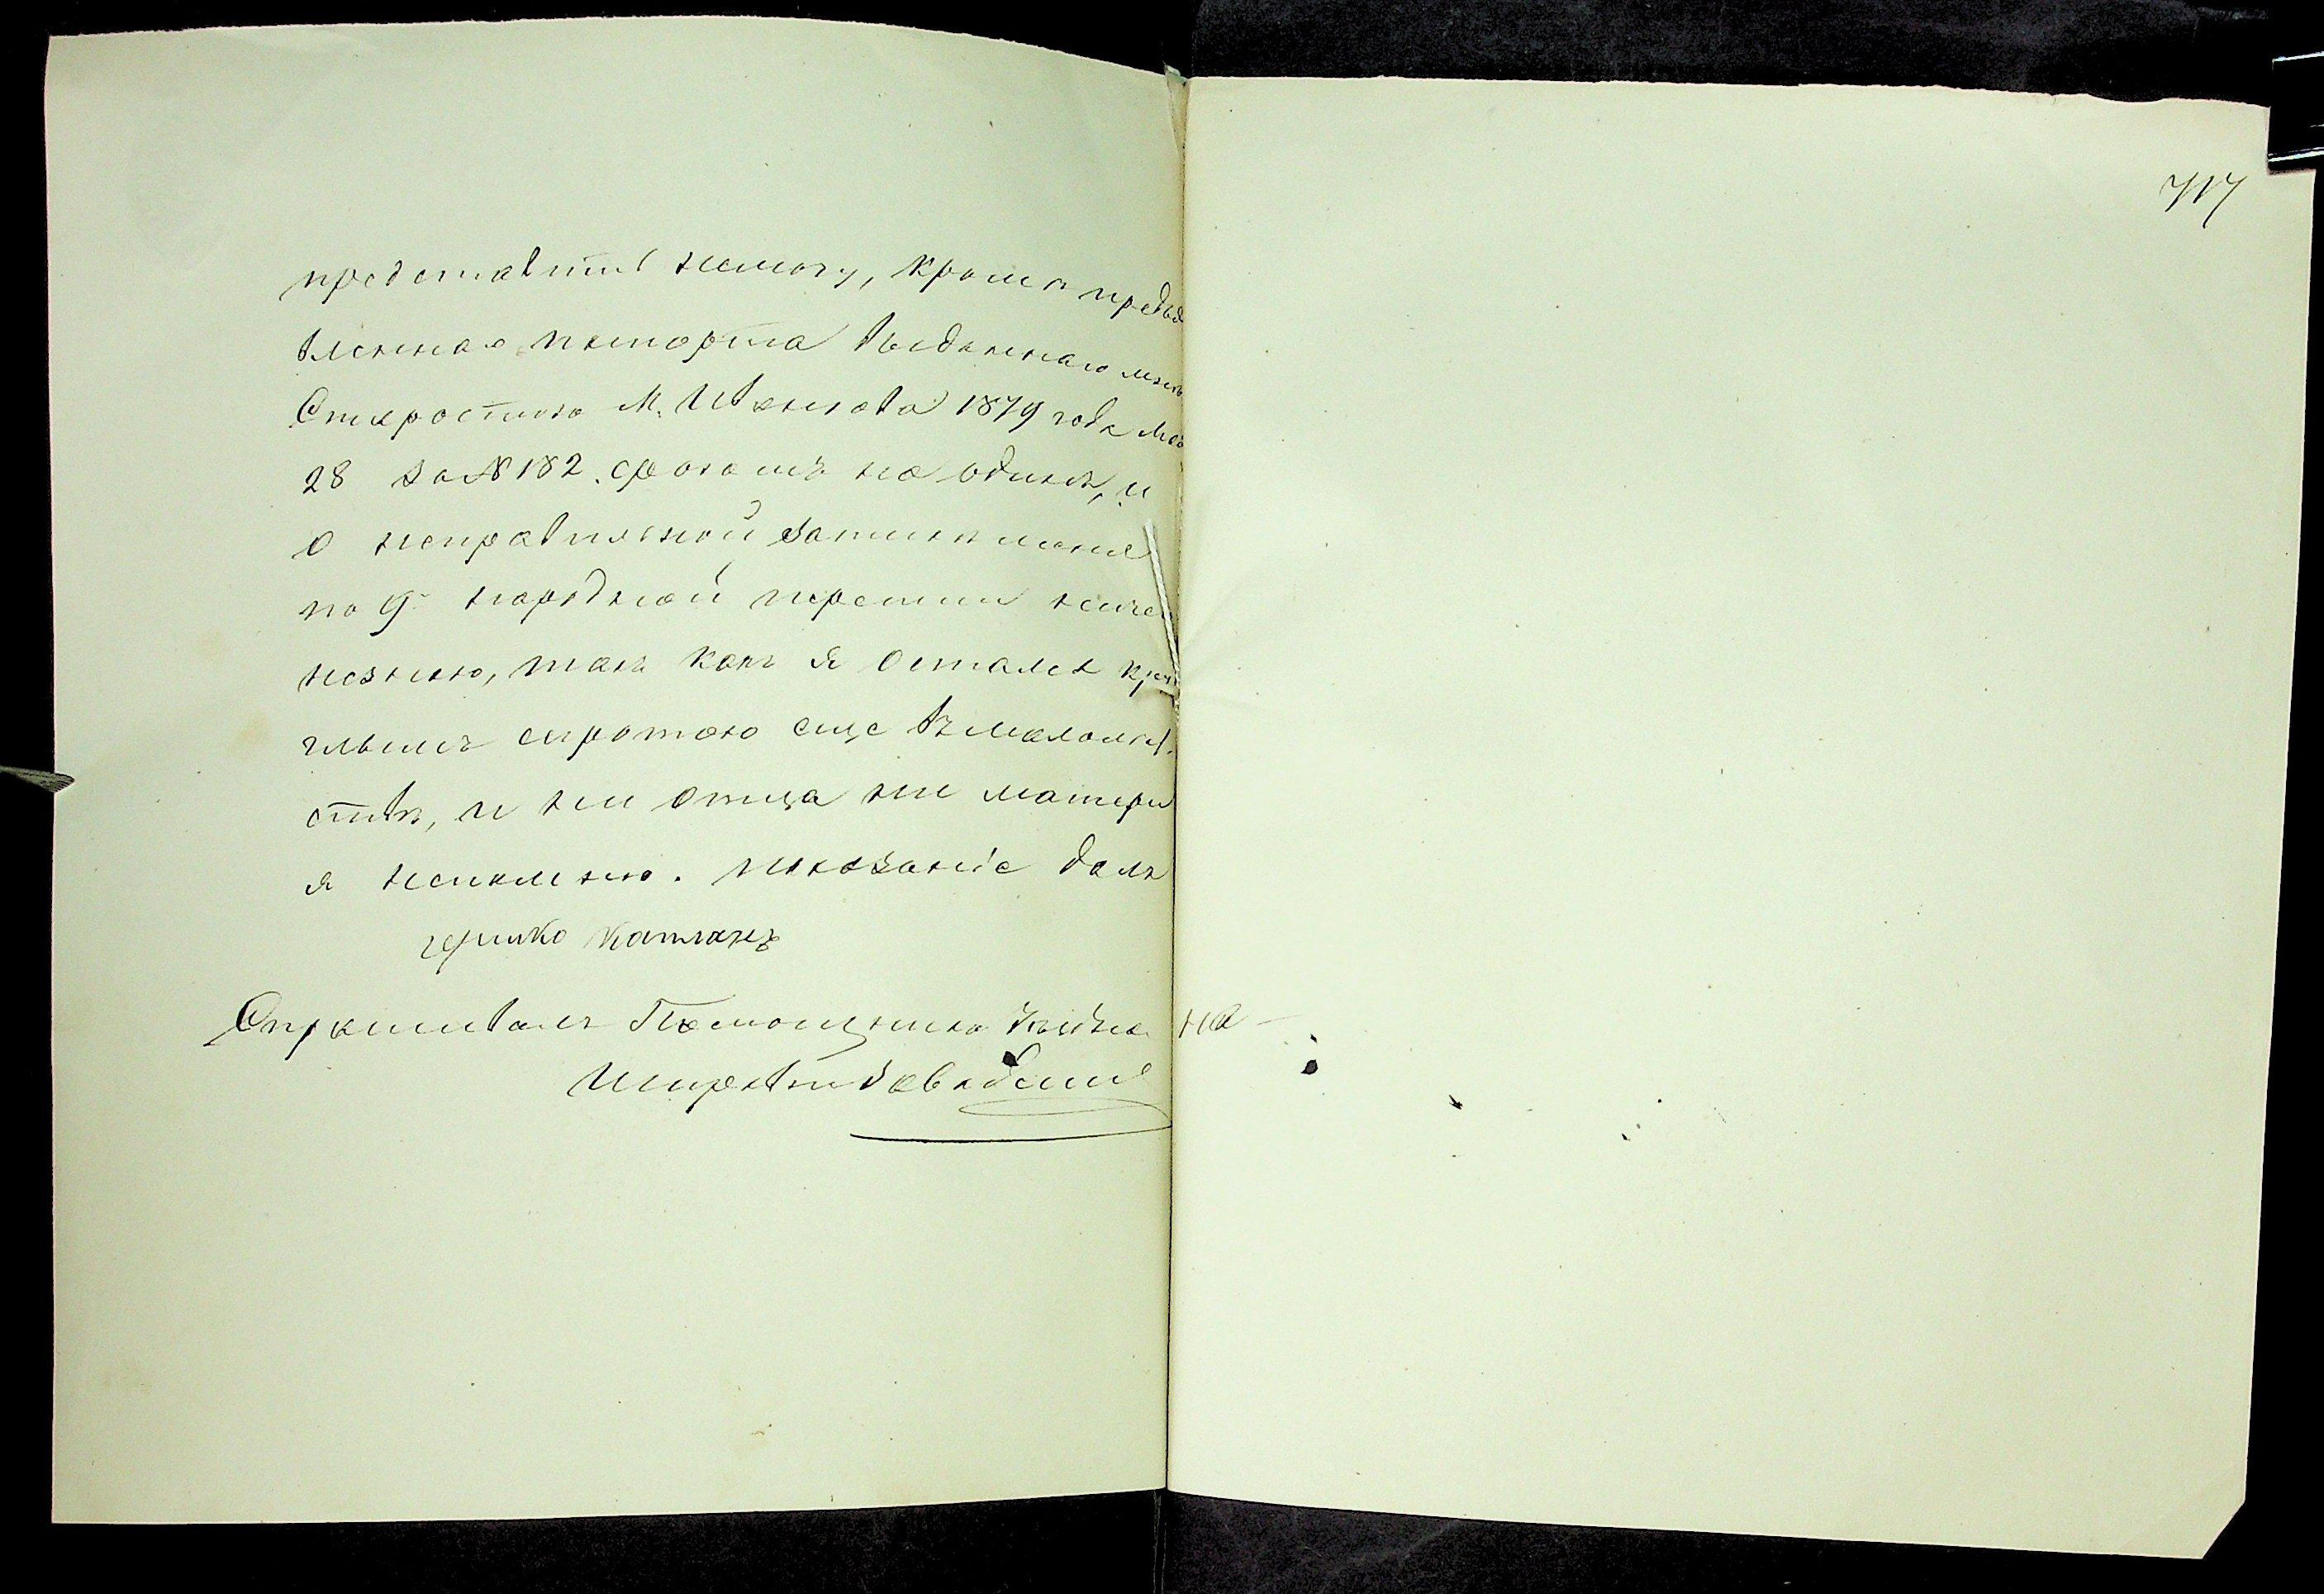 717
представить немогу, кроме предъя
вленнаго паспорта выданнаго мнѣ
Старостою М. Иванова 1879 года
28 за № 182. срокомъ на одинъ, и
о неправильной записи меня
по 9й народной переписи ничего
незнаю, такъ какъ я остался кру
глымъ сиротою еще въ малолѣт
ствѣ, и ни отца ни матери
я непомню. показаніе далъ
гершко капланъ
Спрашивалъ Помощникъ